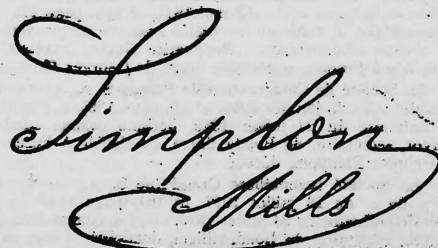 Simplon
Mills